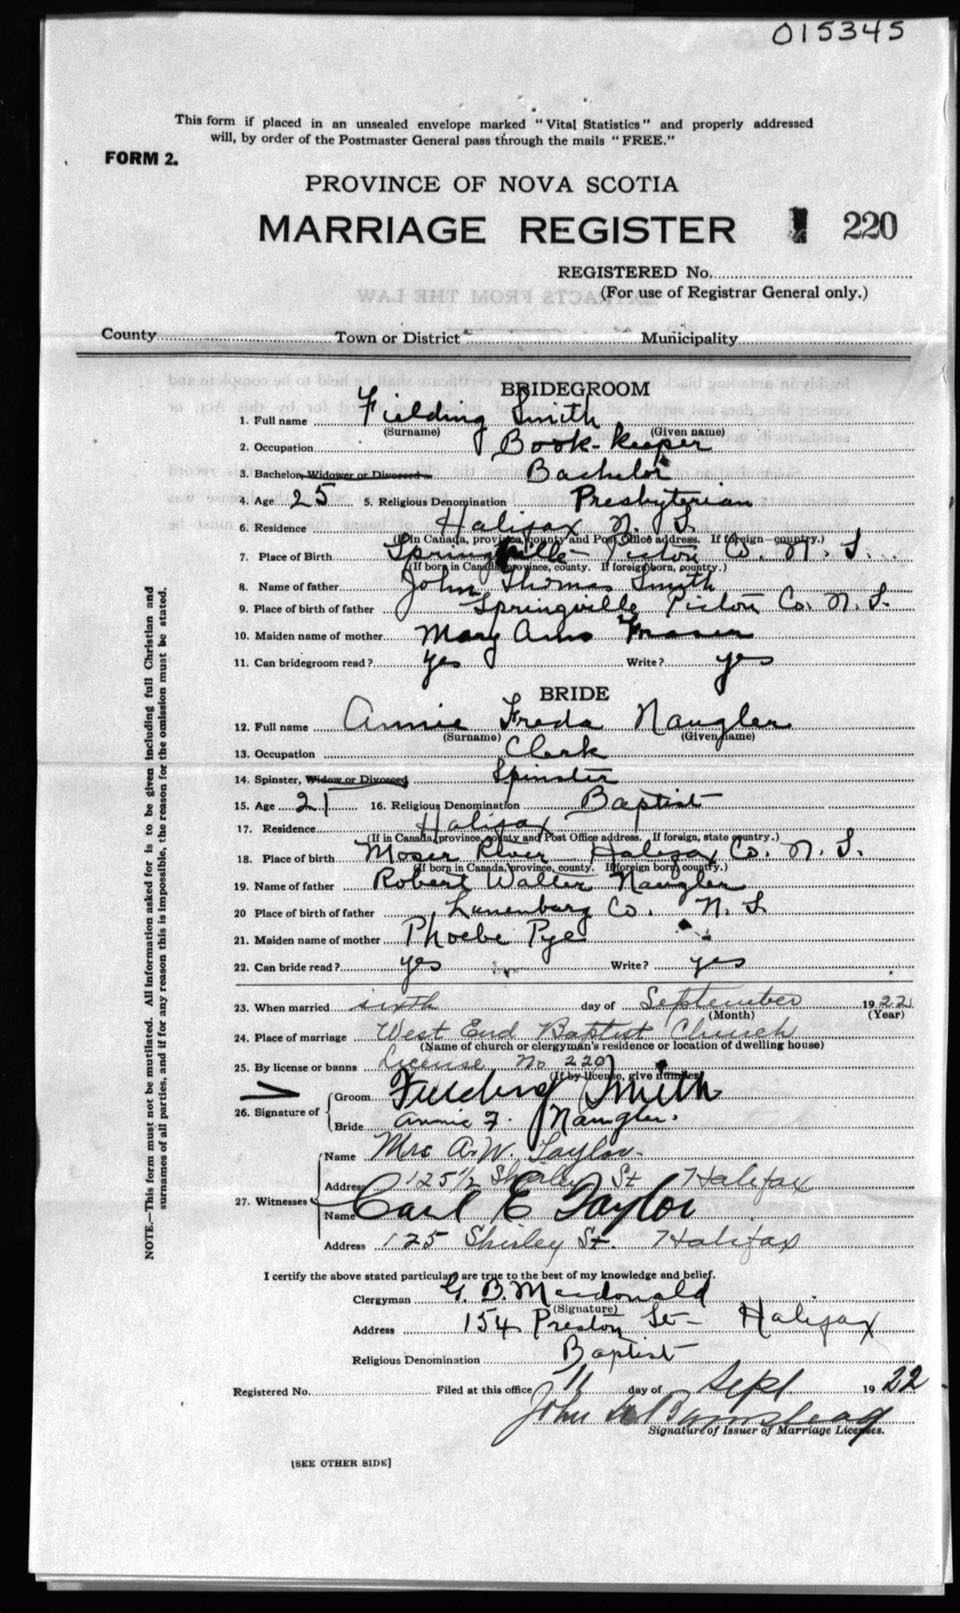 015345
This form if placed in an unsealed envelope marked "Vital Statistics" and properly addressed
will, by order of the Postmaster General pass through the mails "FREE."
FORM 2.
PROVINCE OF NOVA SCOTIA
MARRIAGE REGISTER 220
REGISTERED No.
(For use of Registrar General only.)
County Town or District Municipality
BRIDEGROOM
1. Full name Fielding Smith
(Surname) (Given name)
2. Occupation Book-keeper
3. Bachelor, Widower or Divorced Bachelor
4. Age 25 5. Religious Denomination Presbyterian
6. Residence Halifax N. S.
(In Canada, province, county and Post Office address. If foreign—country.)
7. Place of Birth Springville Pictou Co. N. S.
(If born in Canada, province, county. If foreign born, country.)
8. Name of father John Thomas Smith
9. Place of birth of father Springville Pictou Co. N. S.
10. Maiden name of mother Mary Ann Fraser
11. Can bridegroom read? yes Write? yes
BRIDE
12. Full name Annie Freda Naugler
(Surname) (Given name)
13. Occupation Clerk
14. Spinster, Widow or Divorced Spinster
15. Age 21 16. Religious Denomination Baptist
17. Residence Halifax
(If in Canada, province, county and Post Office address. If foreign, state country.)
18. Place of birth Moser River Halifax Co. N. S.
(If born in Canada, province, county. If foreign born country.)
19. Name of father Robert Walter Naugler
20 Place of birth of father Lunenburg Co. N. S.
21. Maiden name of mother Phoebe Pye
22. Can bride read? yes Write? yes
23. When married sixth day of September 1922
(Month) (Year)
24. Place of marriage West End Baptist Church
(Name of church or clergyman's residence or location of dwelling house)
25. By license or banns License No 220
(If by license, give number)
26. Signature of
Groom Fielding Smith
Bride Annie F. Naugler.
27. Witnesses
Name Mrs A. W. Taylor.
Address 125 1/2 Shirley St Halifax
Name Carl E Taylor
Address 125 Shirley St. Halifax
I certify the above stated particulars are true to the best of my knowledge and belief.
Clergyman G. B. Macdonald
(Signature)
Address 154 Preston St Halifax
Religious Denomination Baptist
Registered No. Filed at this office 11 day of Sept 1922
John
Signature of Issuer of Marriage Licenses.
[SEE OTHER SIDE]
NOTE.—This form must not be mutilated. All information asked for is to be given including full Christian and
surnames of all parties, and if for any reason this is impossible, the reason for the omission must be stated.